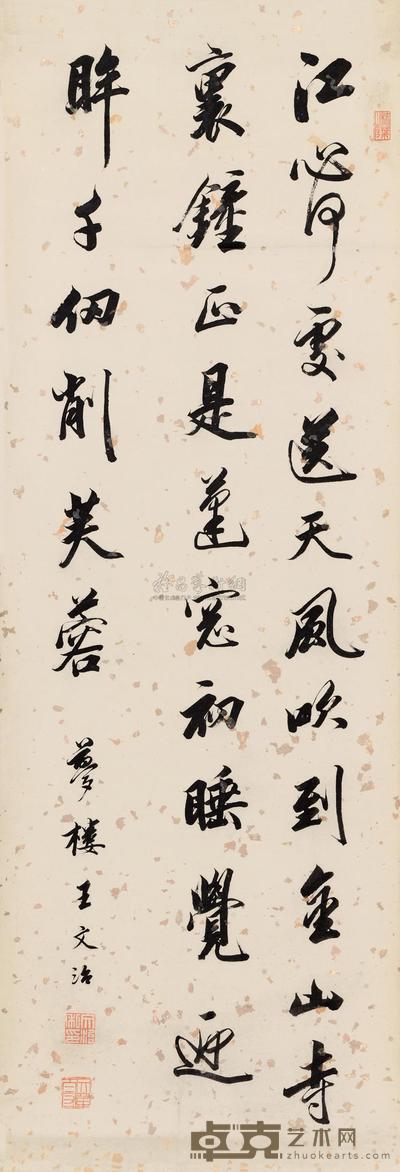 江心何處送天風吹到金山寺
裏鐘正是蓬窓初睡覺迎
眸千仞削芙蓉
夢樓王文治
卓克艺术网
zhuokearts.com